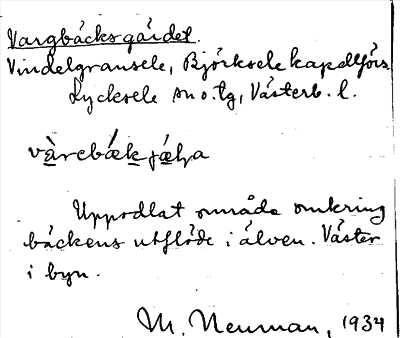 Vargbäcksgärdet.
Vindelgransele, Björksele kapellförs.
Lycksele sn o. tg, Västerb. l.
Uppodlat område omkring
bäckens utflöde i älven. Väster
i byn.
M. Neuman, 1934